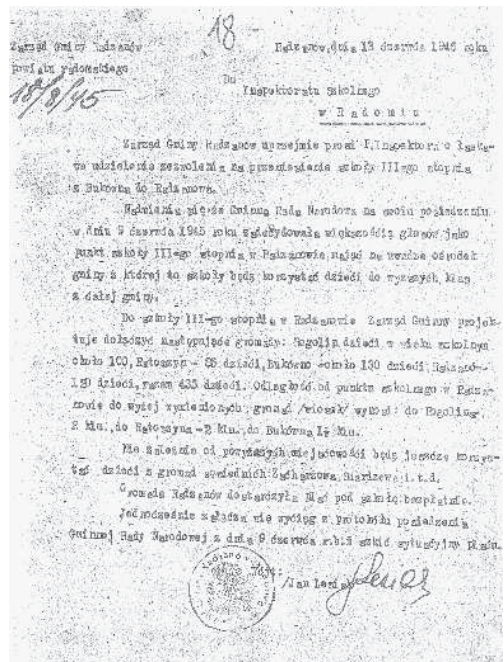 18
Zarząd Gminy Radzanów
powiatu radomskiego
18/8/45
Radzanów, dnia 13 czerwca 1945 roku
Do
Inspektoratu Szkolnego
w Radomiu
Zarząd Gminy Radzanów uprzejmie prosi P. Inspektora o łaska-
we udzielenie zezwolenia na przeniesienie szkoły III-go stopnia
z Bukówna do Radzanowa.
Nadmienia się, że Gminna Rada Narodowa na swoim posiedzeniu
w dniu 9 czerwca 1945 roku zadecydowała większością głosów jako
punkt szkoły III-go stopnia w Radzanowie, mając na uwadze ośrodek
gminy z której to szkoły będą korzystać dzieci do wyższych klas
z całej gminy.
Do szkoły III-go stopnia w Radzanowie Zarząd Gminny projek-
tuje dołączyć następujące gromady: Rogolin dzieci w wieku szkolnym
około 100, Ratoszyn - 85 dzieci, Bukówno - około 130 dzieci, Radzanów-
120 dzieci, razem 435 dzieci. Odległość od punktu szkolnego w Radza-
nowie do wyżej wymienionych gromad /wiosek/ wynosi: do Rogolina
2 klm., do Ratoszyna - 2 klm., do Bukówna 1½ klm.
Nie zależnie od powyższych miejscowości będą jeszcze korzys-
tać dzieci z gromad sąsiednich Zacharzowa, i.t.d.
Gromada Radzanów dostarczyła plac pod szkołę bezpłatnie.
Jednocześnie załącza się wyciąg z protokółu posiedzenia
Gminnej Rady Narodowej z dnia 9 czerwca r.b. i szkic sytuacyjny placu.
Wójt:
/Jan Lesiak/